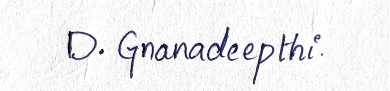 D. Gnanadeepthi.